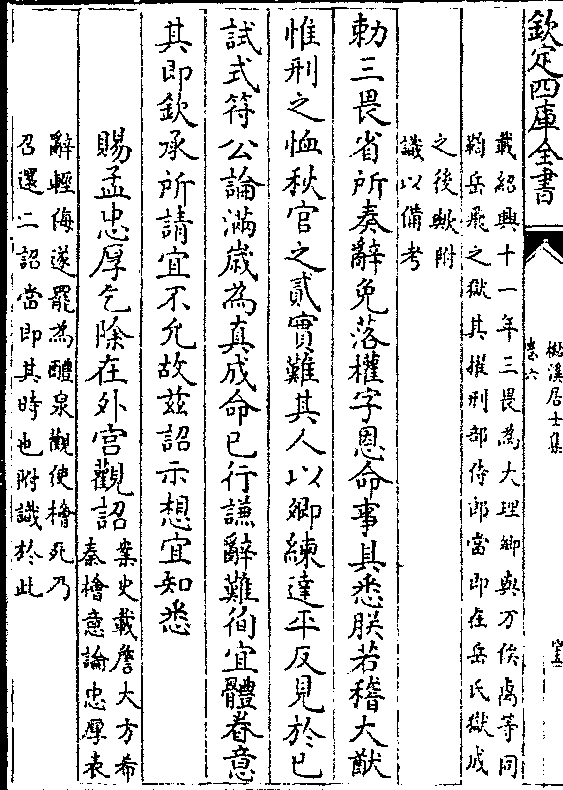 欽定四庫全書
樵溪居士集
卷六
載紹興十一年三畏為大理卿與万俟卨等同
鞫岳飛之獄其擢刑部侍郎當即在岳氏獄成
之後歟附
識以備考
勅三畏省所奏辭免落權字恩命事具悉朕若稽大猷
惟刑之恤秋官之貳實難其人以卿練達平反見於已
試式符公論滿歲為真成命已行謙辭難徇宜體眷意
其即欽承所請宜不允故茲詔示想宜知悉
賜孟忠厚乞除在外宮觀詔
案史載詹大方希
秦檜意論忠厚表
辭輕侮遂罷為醴泉觀使檜死乃
召還二詔當即其時也附識於此